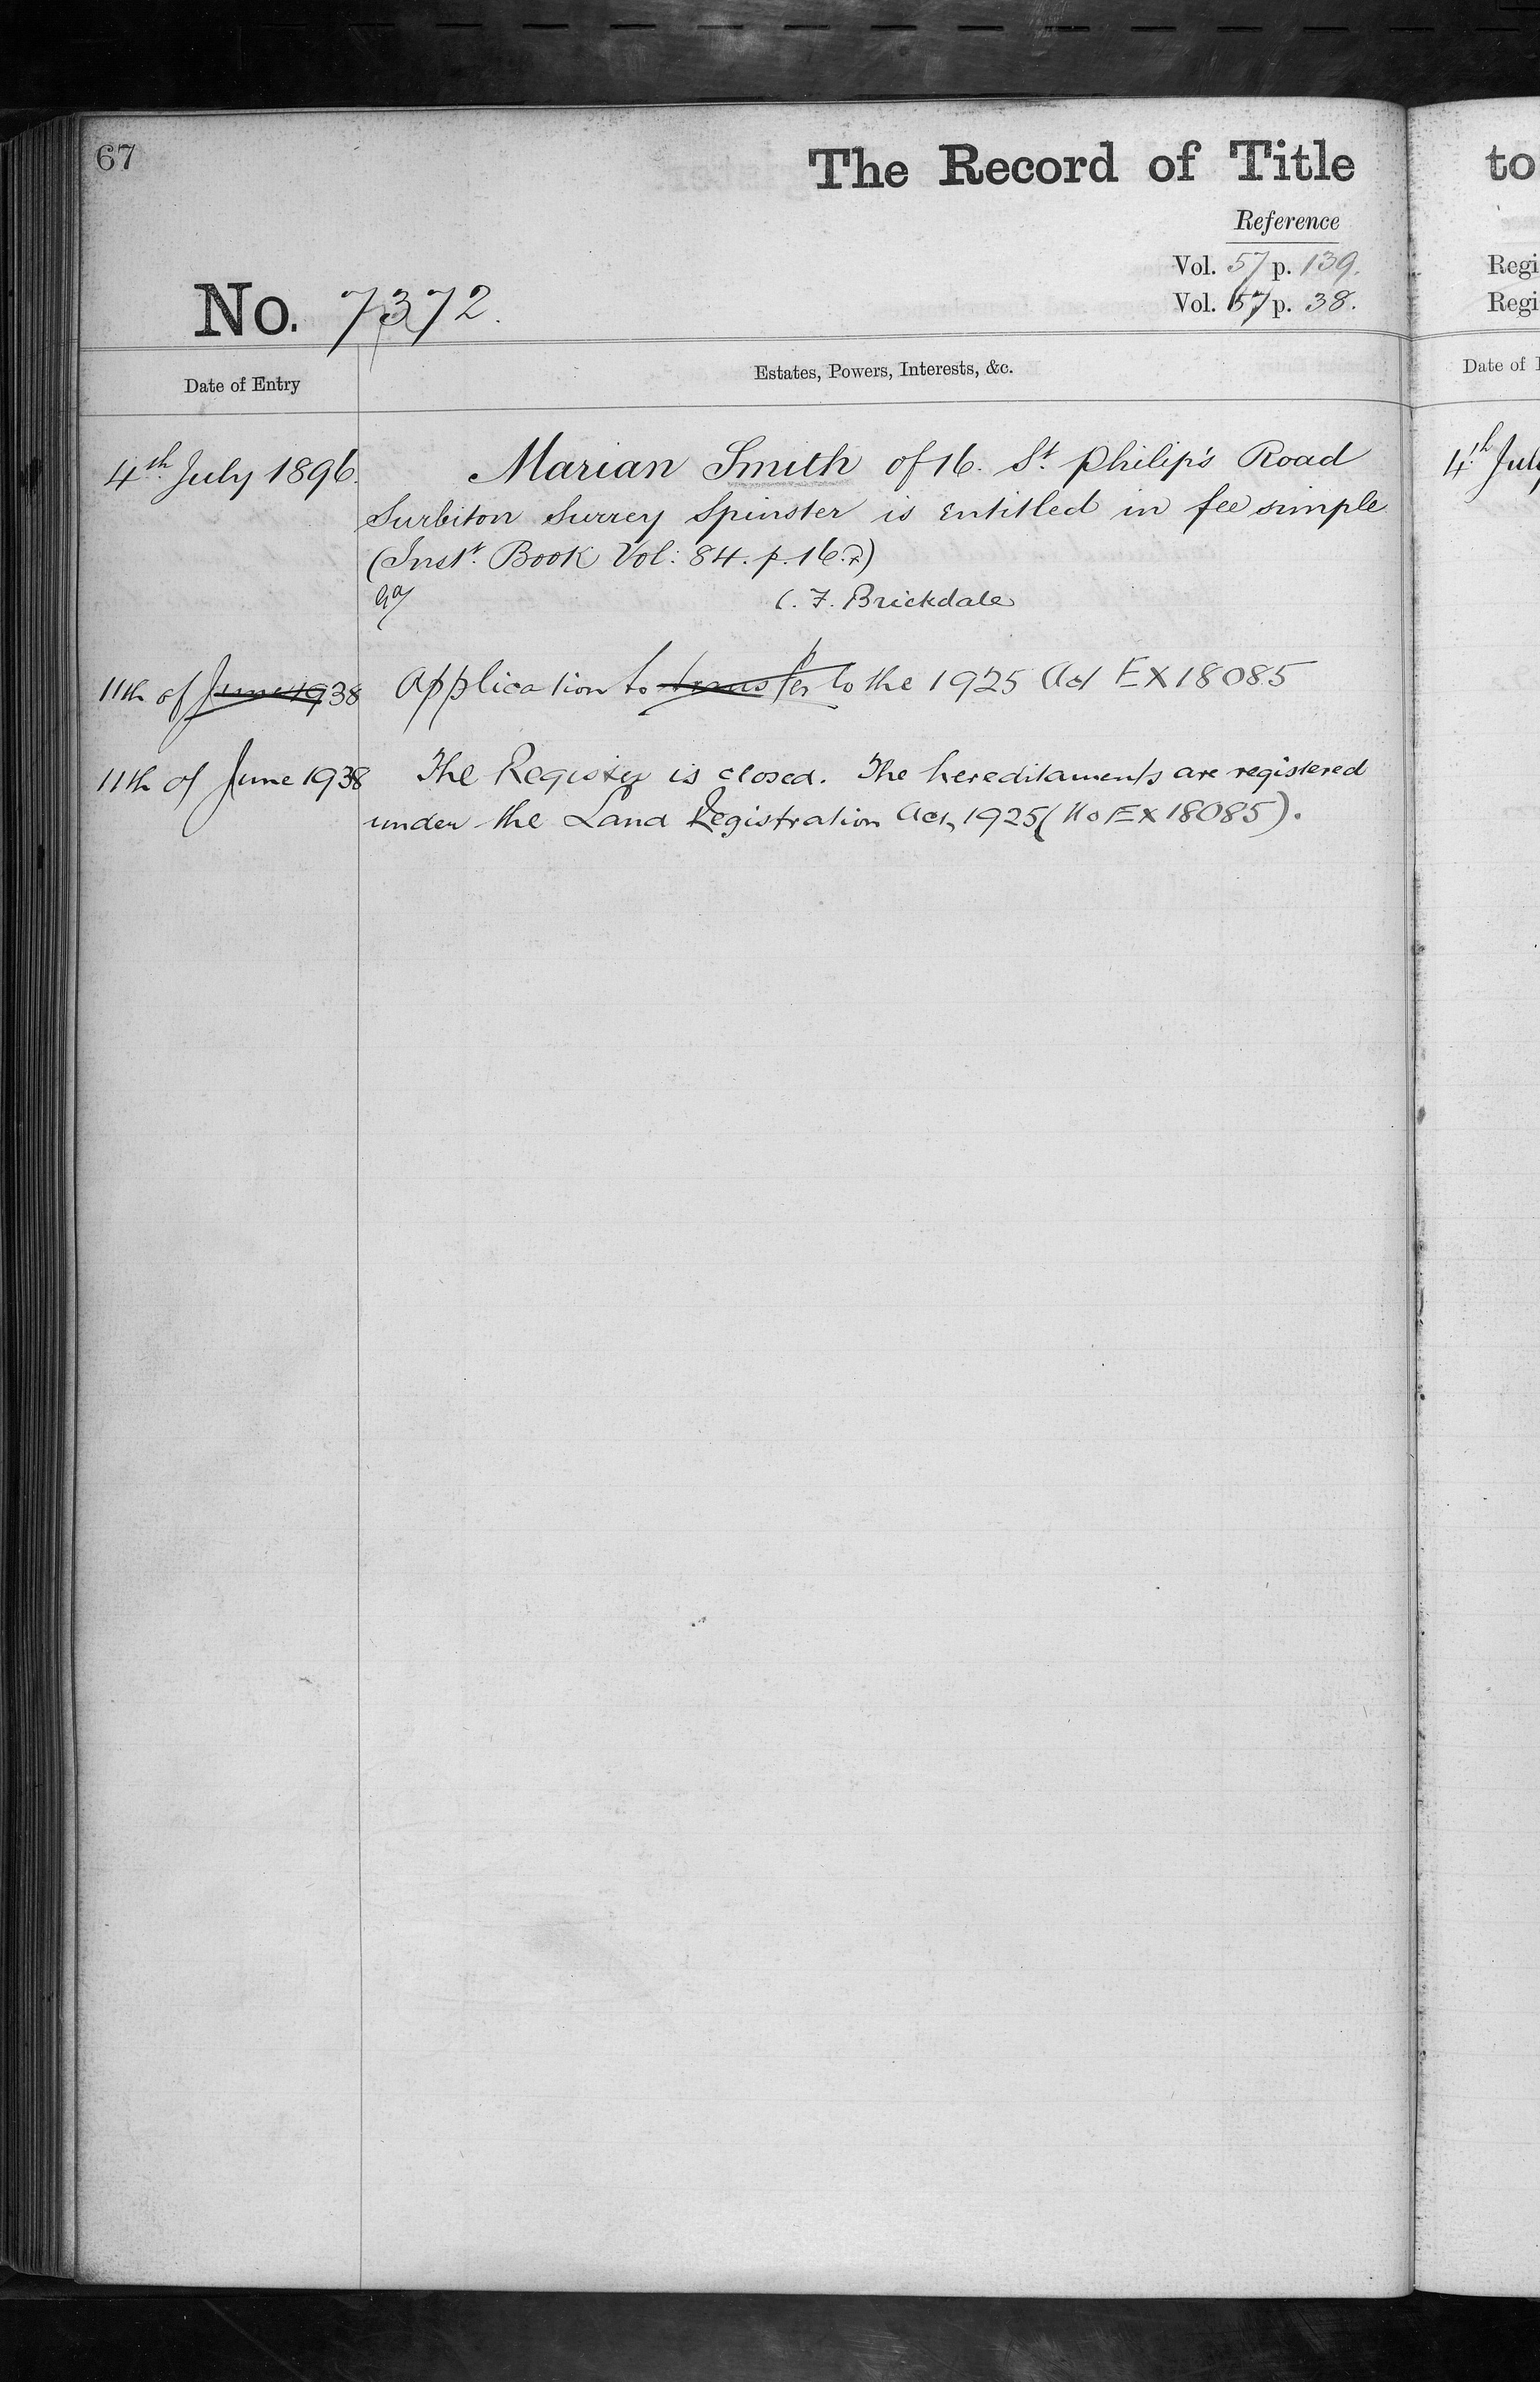 67
The Record of Title
Reference
Vol. 57 p. 139.
Vol. 57 p. 38.
No. 7372.
Date of Entry
Estates, Powers, Interests, &c.
4th. July 1896.
Marian Smith of 16. St. Philip's Road
Surbiton Surrey Spinster is entitled in fee simple
(Inst. Book Vol: 84. p. 16.)
C. F. Brickdale
11th of June 1938
Application to transfer to the 1925 Act EX18085
11th of June 1938
The Register is closed. The hereditaments are registered
under the Land Registration Act, 1925 (No EX18085).
to
Regi
Regi
Date of
4th July